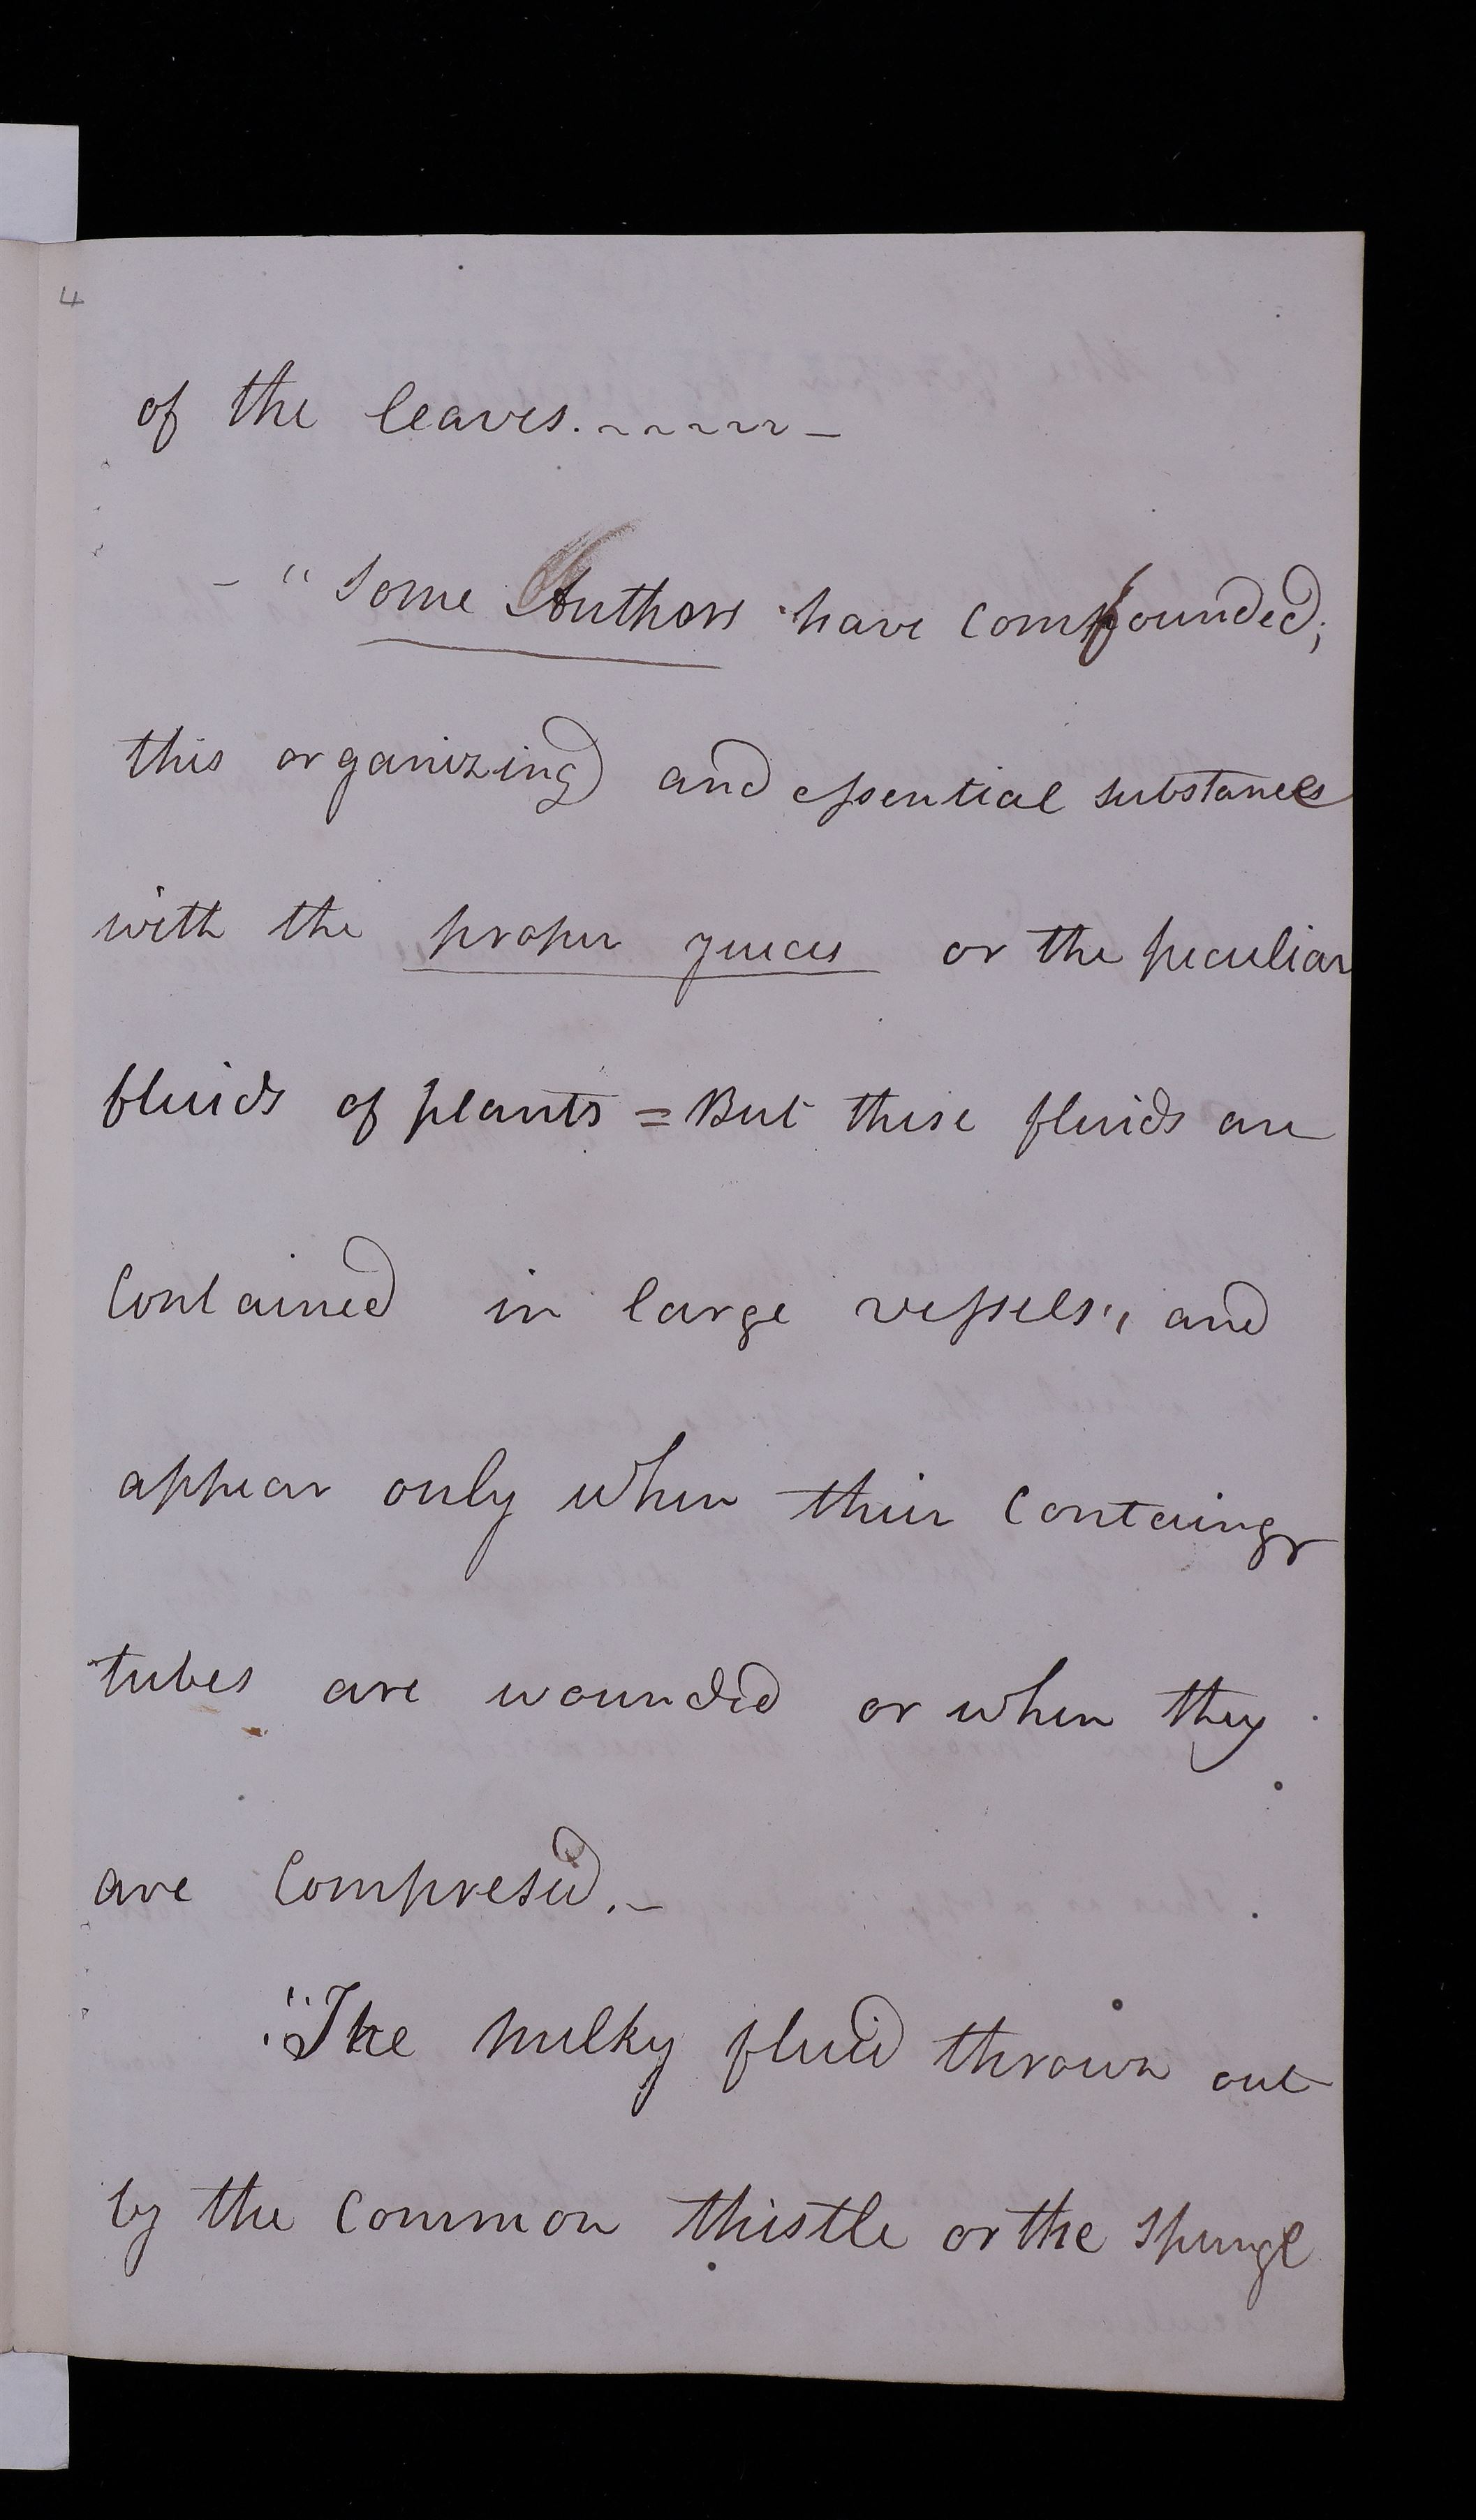 4
of the leaves. ~ ~ ~ ~ ~ —
– " Some Authors have confounded;
this organizing and essential substances
with the proper juices or the peculiar
fluids of plants = But these fluids are
contained in large vessels, and
appear only when their containgr
tubes are wounded or when they
are compresed. –
"The milky fluid thrown out
by the common thistle or the spurge